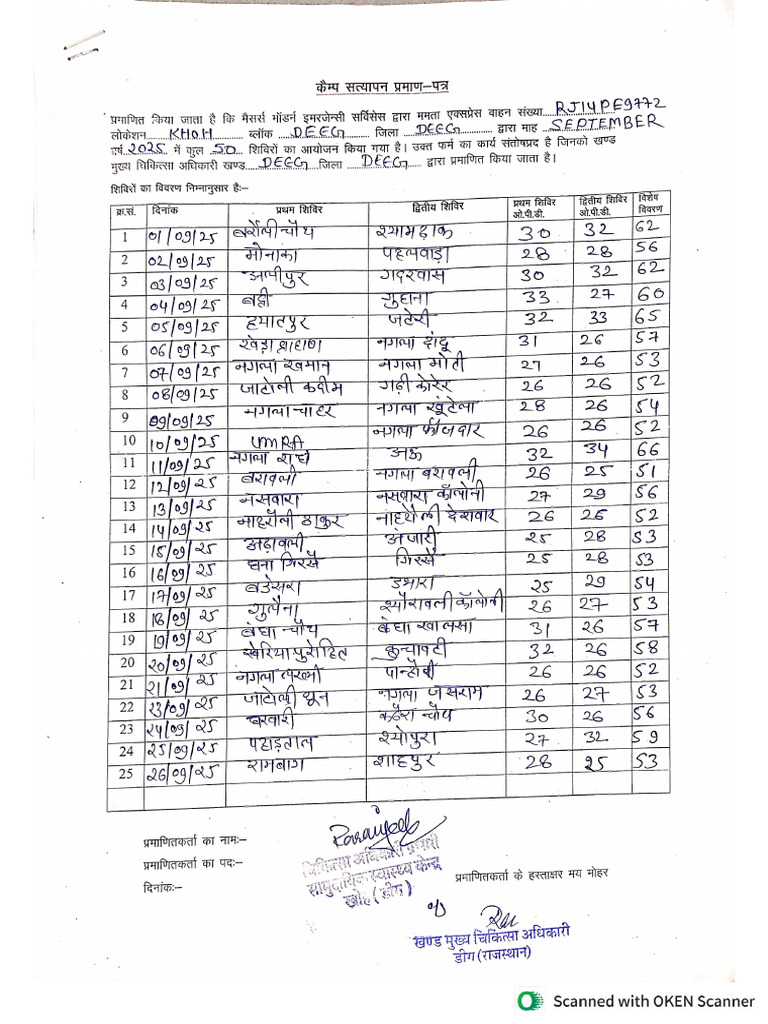 कैम्प सत्यापन प्रमाण–पत्र
प्रमाणित किया जाता है कि मैसर्स मॉडर्न इमरजेन्सी सर्विसेस द्वारा ममता एक्सप्रेस वाहन संख्या RJ14PE9772
लोकेशन KHOH ब्लॉक DEEG जिला DEEG द्वारा माह SEPTEMBER
वर्ष 2025 में कुल 50 शिविरों का आयोजन किया गया है। उक्त फर्म का कार्य संतोषप्रद है जिनको खण्ड
मुख्य चिकित्सा अधिकारी खण्ड DEEG जिला DEEG द्वारा प्रमाणित किया जाता है।
शिविरों का विवरण निम्नानुसार हैः–
क्र.सं. दिनांक प्रथम शिविर द्वितीय शिविर प्रथम शिविर ओ.पी.डी. द्वितीय शिविर ओ.पी.डी. विशेष विवरण
1 01/09/25 बरौलीचौथ श्यामढाक 30 32 62
2 02/09/25 मोनाका पहलवाड़ा 28 28 56
3 03/09/25 अलीपुर गदरवास 30 32 62
4 04/09/25 बद्री गुहाना 33 27 60
5 05/09/25 हयातपुर जटेरी 32 33 65
6 06/09/25 खेड़ा ब्राहाण नगला झंदू 31 26 57
7 07/09/25 नगला खमान नगला मोती 27 26 53
8 08/09/25 जाटोली कदीम गढ़ी कोरेर 26 26 52
9 09/09/25 नगला चाहर नगला खूंटेला 28 26 54
10 10/09/25 UMRA नगला फौजदार 26 26 52
11 11/09/25 नगला राधे अऊ 32 34 66
12 12/09/25 बरावली नगला बरावली 26 25 51
13 13/09/25 नसवारा नसवारा कॉलोनी 27 29 56
14 14/09/25 नाहरौली ठाकुर नाहरौली देशवार 26 26 52
15 15/09/25 अढ़ावली अंजारी 25 28 53
16 16/09/25 घना गिरसै गिरसै 25 28 53
17 17/09/25 बउेसरा डभारा 25 29 54
18 18/09/25 गुलैना श्यौरावली कॉलोनी 26 27 53
19 19/09/25 बंधा चौथ बंधा खालसा 31 26 57
20 20/09/25 खेरिया पुरोहित कुचावटी 32 26 58
21 21/09/25 नगला पान्हौरी 26 26 52
22 23/09/25 जाटोली थून नगला जसराम 26 27 53
23 24/09/25 बरवारी कठेरा चौथ 30 26 56
24 25/09/25 पहाड़ताल श्योपुरा 27 32 59
25 26/09/25 रामबाग शाहपुर 28 25 53
प्रमाणितकर्ता का नामः–
प्रमाणितकर्ता का पदः–
चिकित्सा अधिकारी प्रभारी
सामुदायिक स्वास्थ्य केन्द्र
खोह (डीग)
प्रमाणितकर्ता के हस्ताक्षर मय मोहर
दिनांकः–
खण्ड मुख्य चिकित्सा अधिकारी
डीग (राजस्थान)
Scanned with OKEN Scanner